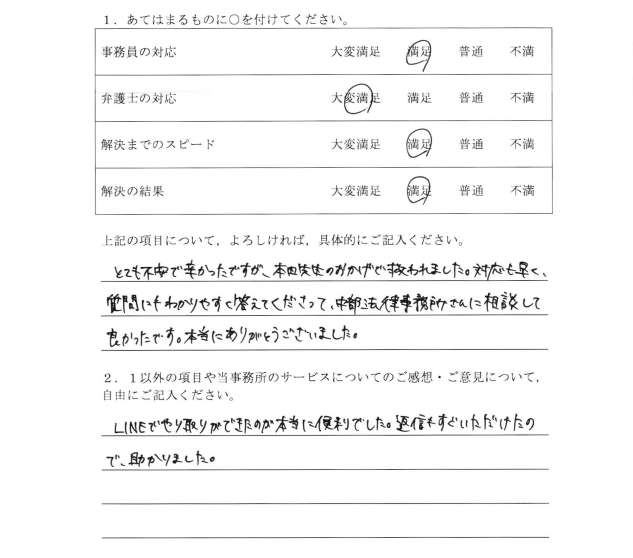 1．あてはまるものに○を付けてください。
事務員の対応 大変満足 満足 普通 不満
弁護士の対応 大変満足 満足 普通 不満
解決までのスピード 大変満足 満足 普通 不満
解決の結果 大変満足 満足 普通 不満
上記の項目について，よろしければ，具体的にご記入ください。
とても不安で辛かったですが、本田先生のおかげで救われました。対応も早く、
質問にもわかりやすく答えてくださって、中部法律事務所さんに相談して
良かったです。本当にありがとうございました。
2．1以外の項目や当事務所のサービスについてのご感想・ご意見について，
自由にご記入ください。
LINEでやり取りができたのが本当に便利でした。返信もすぐいただけたの
で、助かりました。